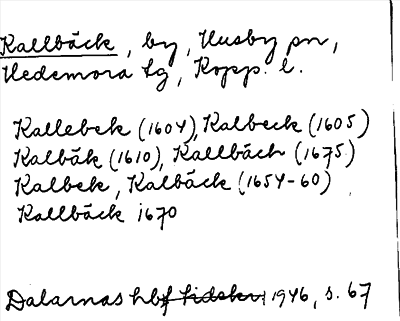 Kallbäck, by, Husby sn,
Hedemora tg, Kopp. l.
Kallebek (1604), Kalbeck (1605)
Kalbäk (1610), Kallbäch (1675)
Kalbek, Kalbäck (1654-60)
Kallbäck 1670
Dalarnas hbf tidskr 1946, s. 67